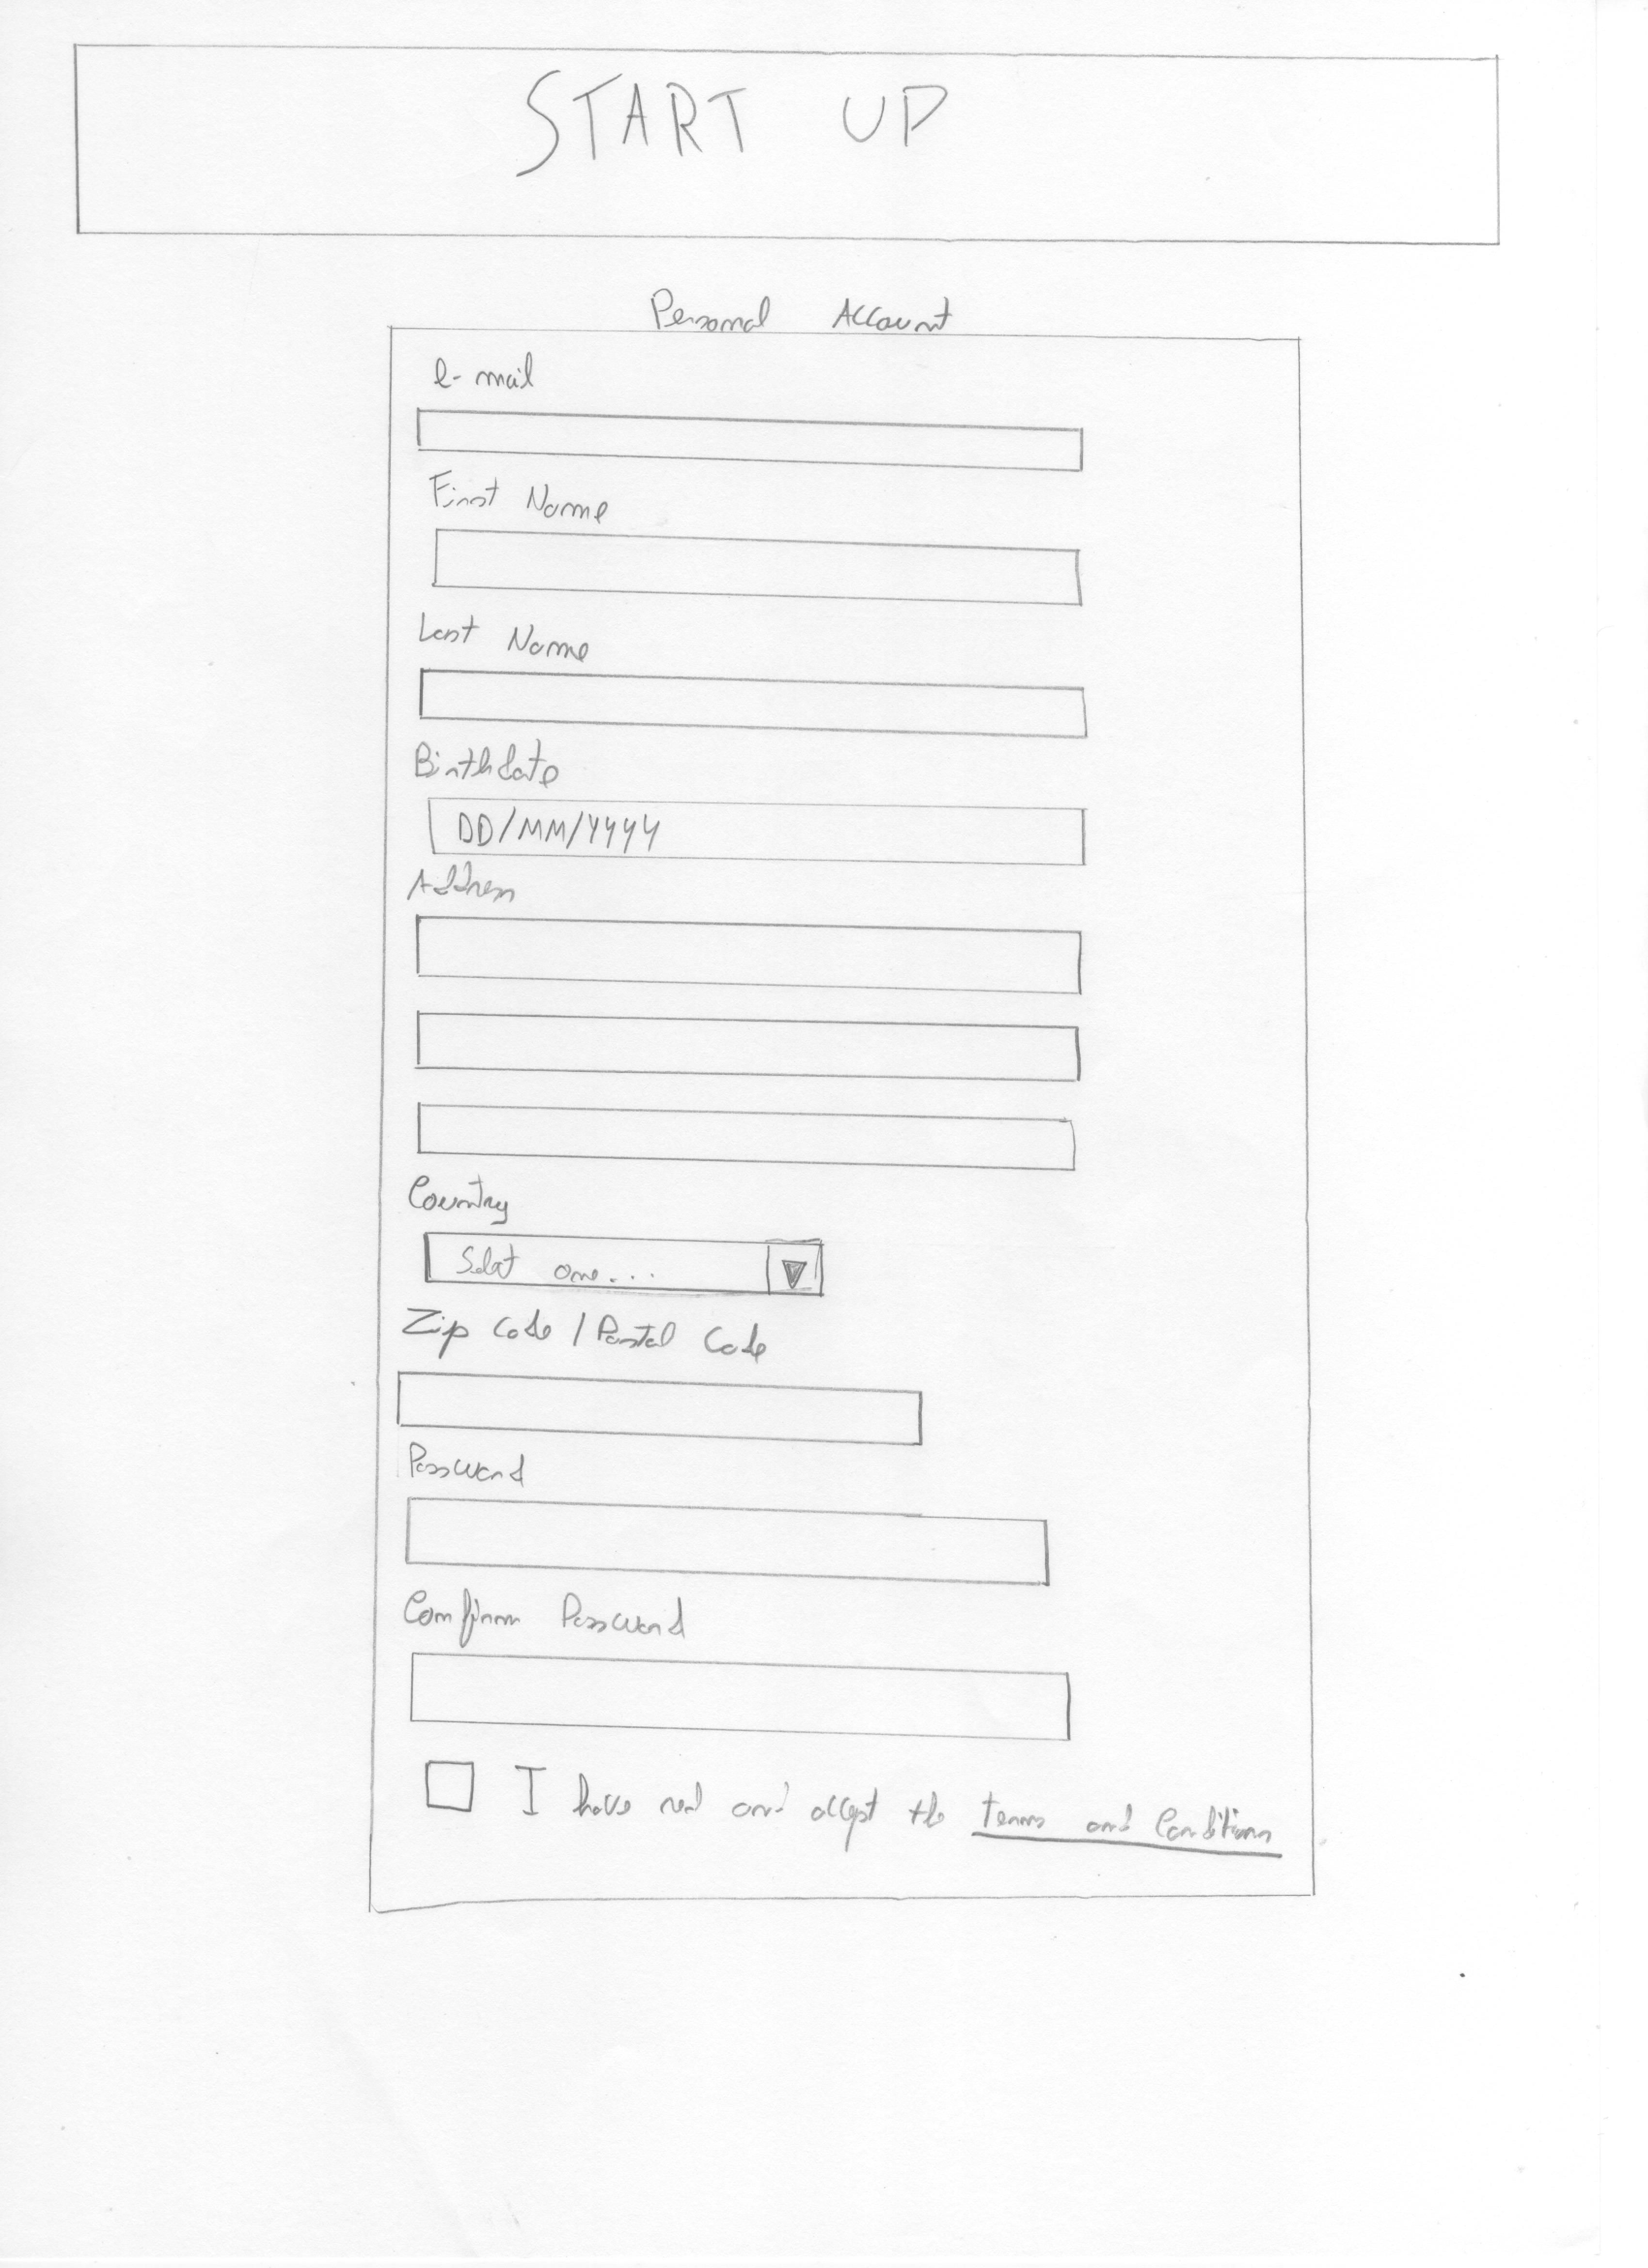 START UP
Personal Account
e-mail
First Name
Last Name
Birthdate
DD/MM/YYYY
Address
Country
Select one...
Zip Code / Postal Code
Password
Confirm Password
I have read and accept the terms and Conditions